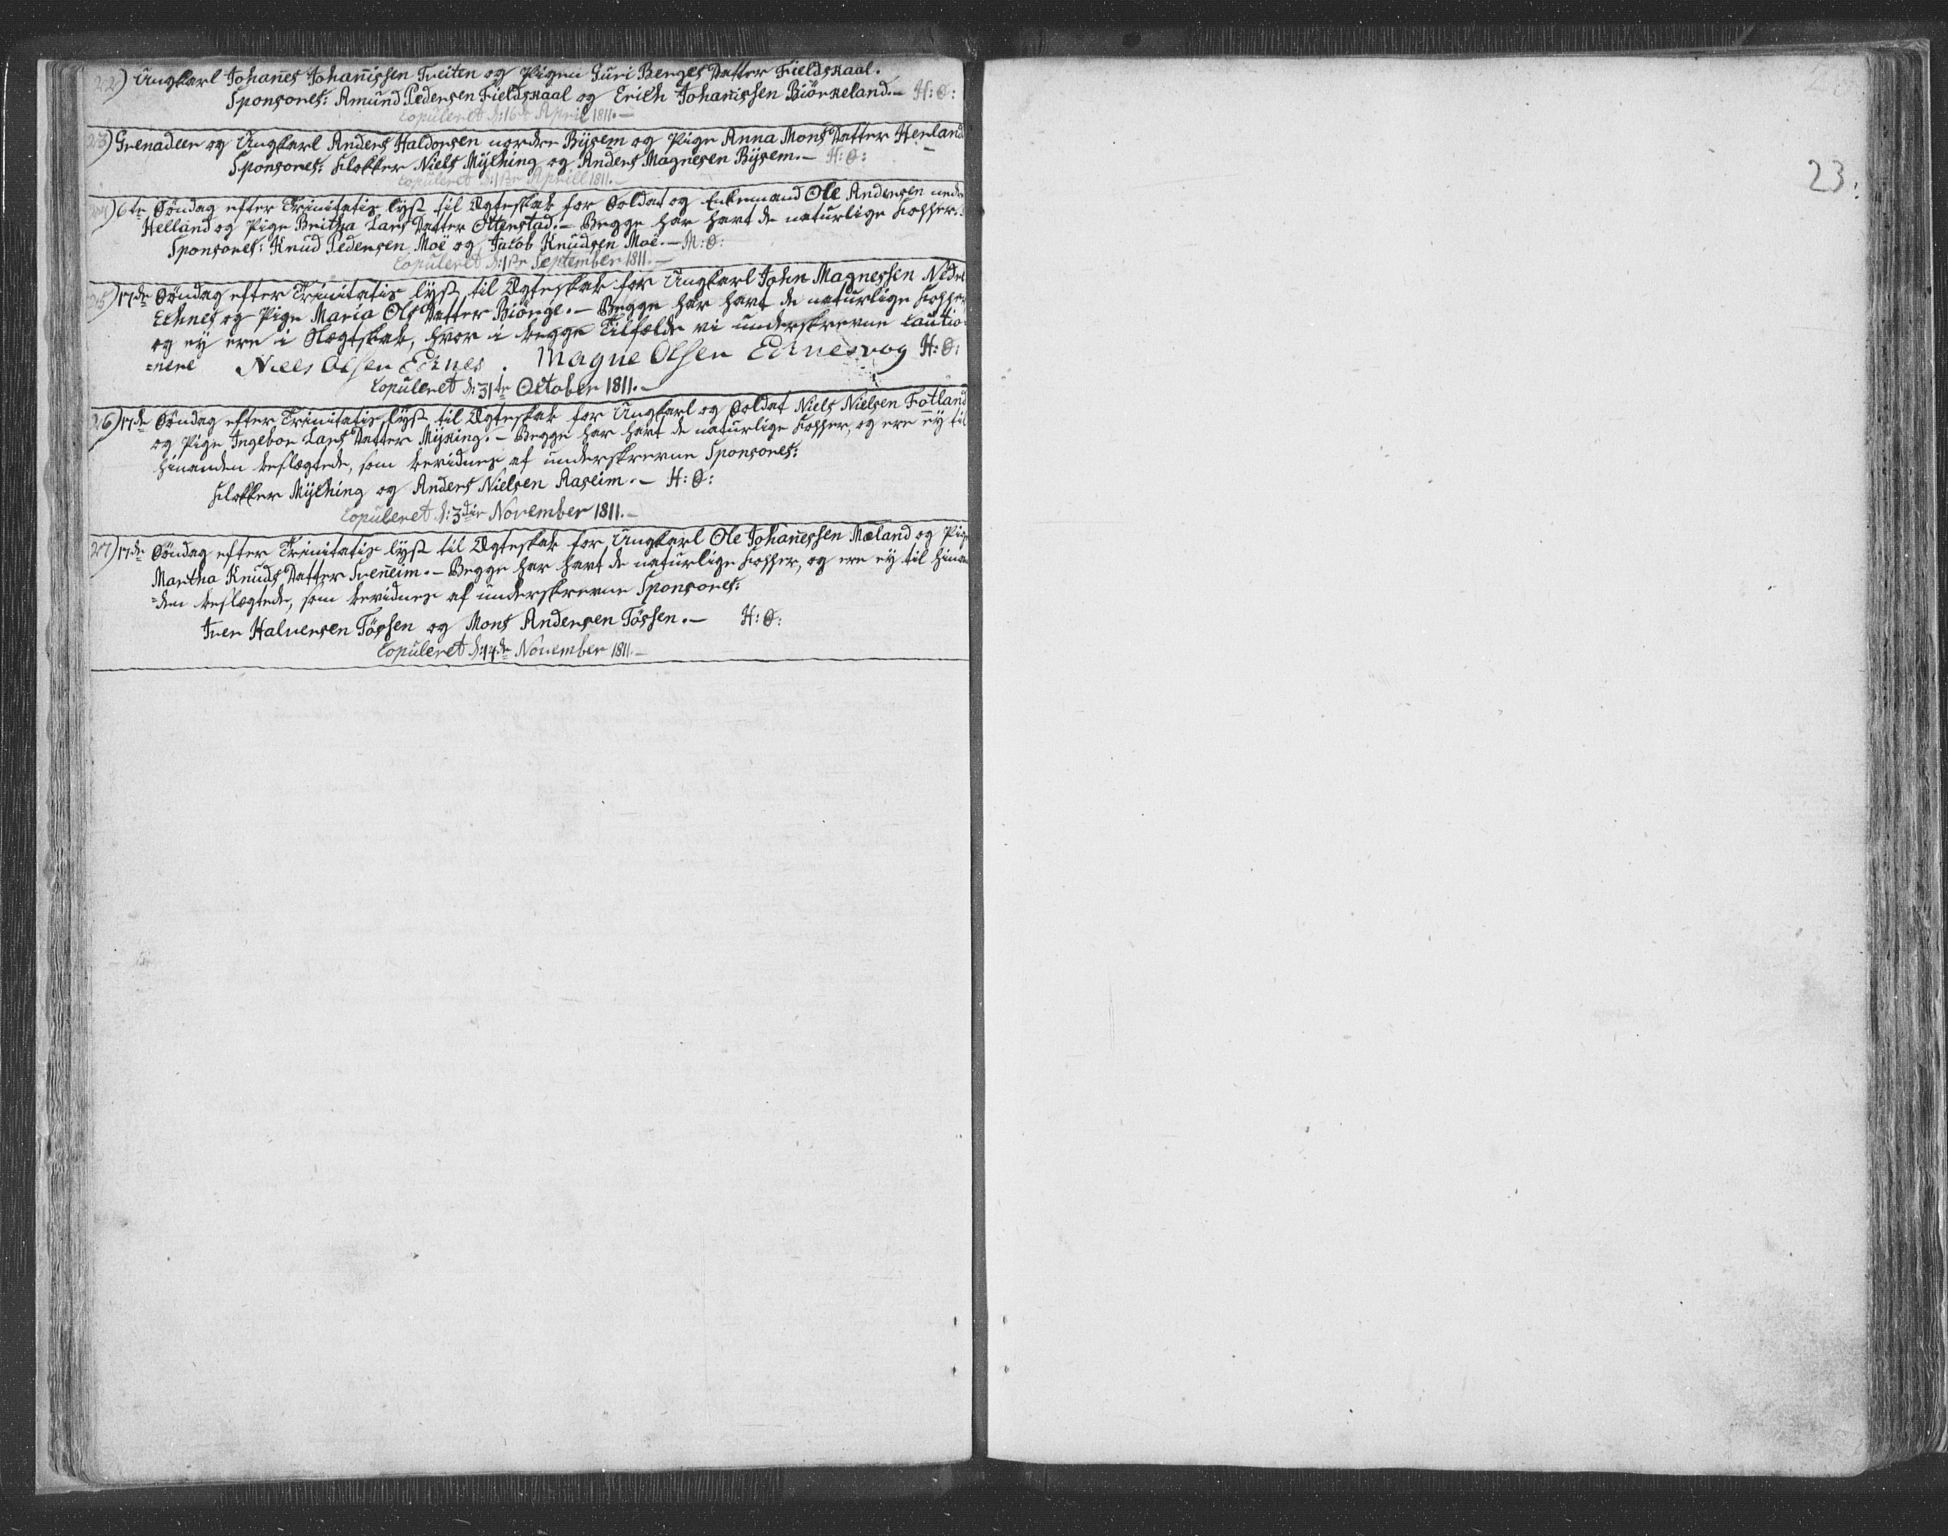 22) Ungkarl Johanes Johanissen Tveiten og Pigen Guri Berges Datter Fieldskaal.
Sponsores: Amund Pedersen Fieldskaal og Erich Johanissen Biörneland. — H: Ø:
Copuleret d: 16de April 1811. —
23) Grenadeer og Ungkarl Anders Haldorsen nordre Bÿsem og Pige Anna Mons Datter Herland
Sponsores: Klokker Niels Mÿlhing og Anders Magnesen Bÿsem. — H: Ø:
Copuleret d: 1ste Aprill 1811. —
24) 6te Söndag efter Trinitatis lyst til Ægteskab for Soldat og Enkemand Ole Andersen nedre
Helland og Pige Britha Lars Datter Ottenstad. — Begge har havt de naturlige Kopper.
Sponsores: Knud Pedersen Moë og Jacob Knudsen Moë. — H: Ø:
Copuleret d: 1ste September 1811. —
25) 17de Söndag efter Trinitatis lyst til Ægteskab for Ungkarl John Magnessen Nedre
Echnes og Pige Maria Ols Datter Biönge. — Begge har havt de naturlige Kopper
og ey ere i Slægtskab, hvor i begge Tilfælde vi underskrevne cautio-
=nere Niels Olsen Echnes. Magne Olsen Echnesvog H: Ø:
Copuleret d: 31te October 1811. —
26) 17de Söndag efter Trinitatis lyst til Ægteskab for Ungkarl og Soldat Niels Nielsen Fotland
og Pige Ingebor Lars Datter Mÿking. — Begge har havt de naturlige Kopper, og ere ey til
hinanden beslægtede, som bevidnes af underskrevne Sponsores:
Klokker Mÿlhing og Anders Nielsen Aaseim. — H: Ø:
Copuleret d: 3die November 1811. —
27) 17de Söndag efter Trinitatis lyst til Ægteskab for Ungkarl Ole Johanessen Mæland og Pige
Martha Knuds Datter Sveneim. — Begge har havt de naturlige Kopper, og ere ey til hinan
=den beslægtede, som bevidnes af underskrevne Sponsores:
Iver Halversen Tössen og Mons Andersen Tössen. — H: Ø:
Copuleret d: 14de November 1811. —
23.